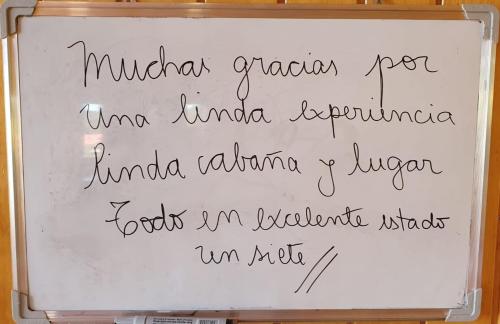 Muchas gracias por
una linda experiencia
linda cabaña y lugar
Todo en excelente estado
un siete //